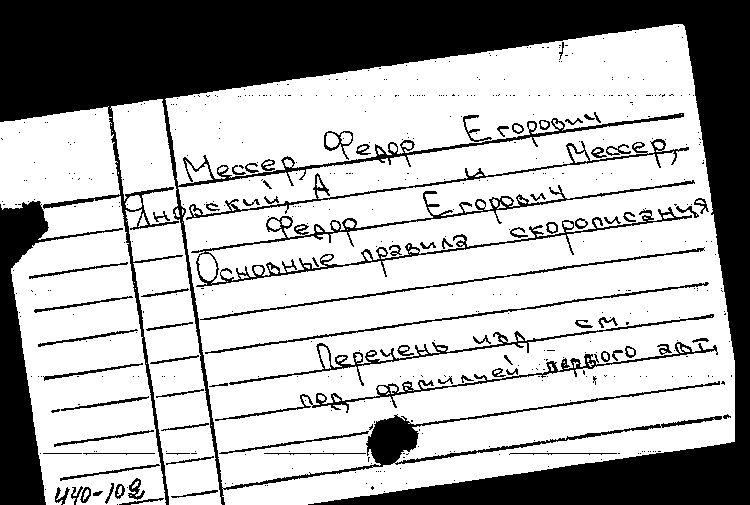 Мессер, Федор Егорович
Яновский, А и Мессер,
Федор Егорович
Основные правила скорописания
Перечень изд, см.
под фамилией первого авт.
440-102